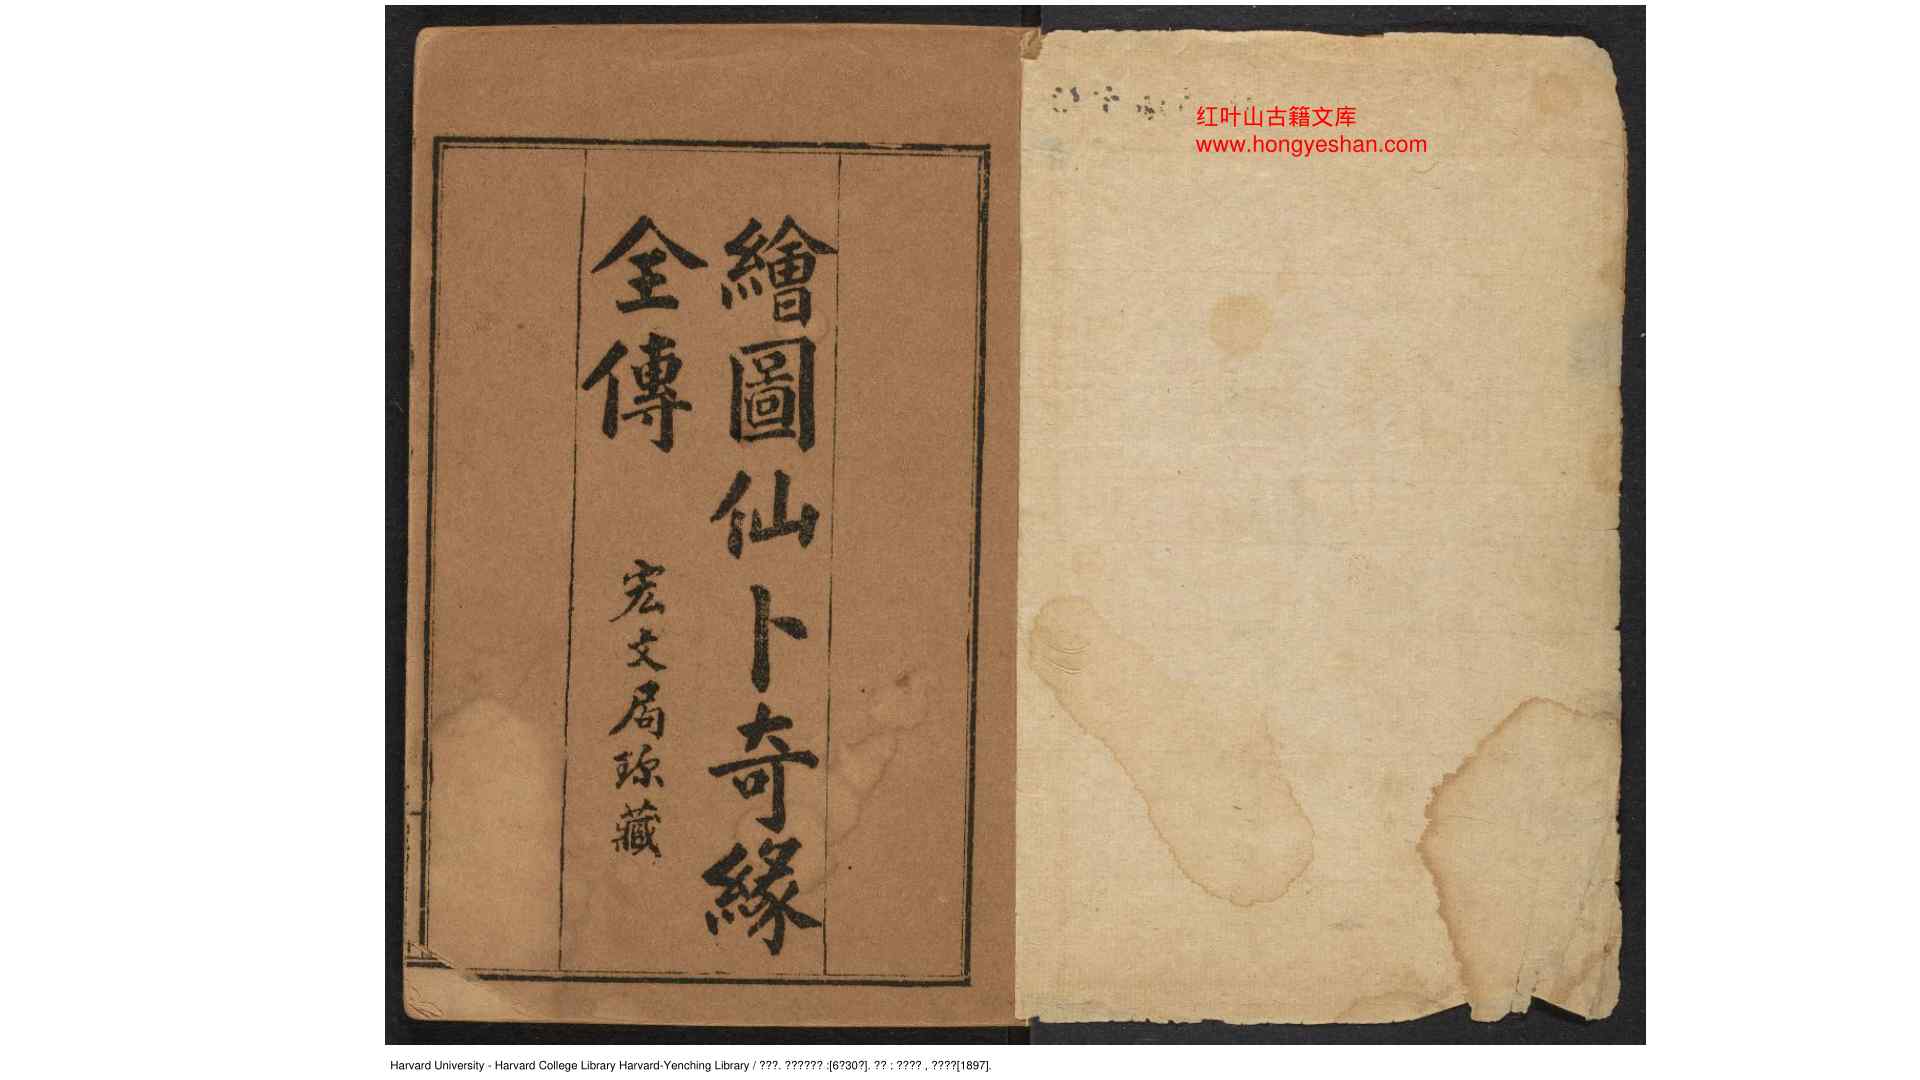 繪圖仙卜奇緣
全傳
宏文局琼藏
红叶山古籍文库
www.hongyeshan.com
Harvard University - Harvard College Library Harvard-Yenching Library / ???. ?????? :[6?30?]. ?? : ???? , ????[1897].